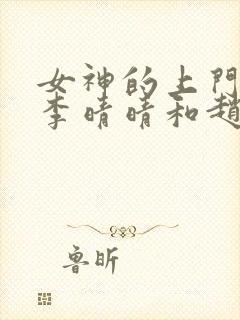 女神的上門
李晴晴和趙
魯昕